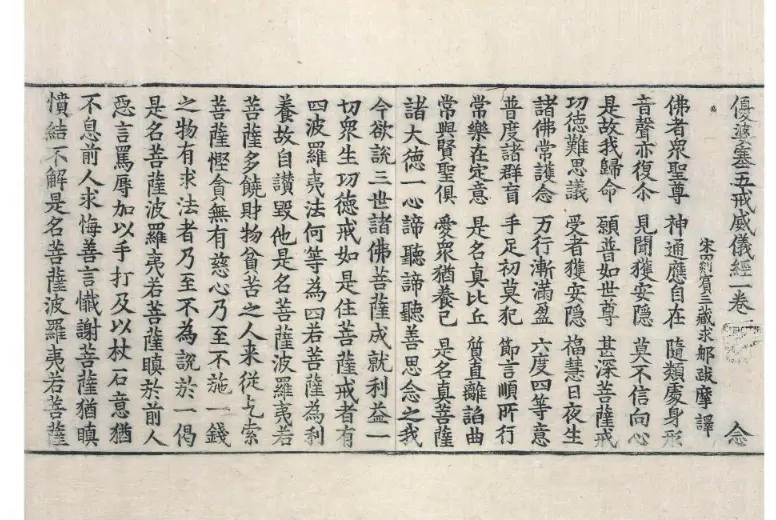 優婆塞五戒威儀經一卷 念
宋罽賓三藏求那跋摩譯
佛者衆聖尊 神通應自在 隨類處身形
音聲亦復尒 見聞獲安隱 莫不信向心
是故我歸命 願普如世尊 甚深菩薩戒
功徳難思議 受者獲安隱 福慧日夜生
諸佛常護念 万行漸滿盈 六度四等意
普度諸群盲 手足初莫犯 節言順所行
常樂在定意 是名真比丘 質直離諂曲
常與賢聖俱 愛衆猶養己 是名真菩薩
諸大德一心諦聽諦聽善思念之我
今欲說三世諸佛菩薩成就利益一
切衆生功徳戒如是住菩薩戒者有
四波羅夷法何等為四若菩薩為利
養故自讃毀他是名菩薩波羅夷若
菩薩多饒財物貧苦之人来從乞索
菩薩慳貪無有慈心乃至不施一錢
之物有求法者乃至不為說於一偈
是名菩薩波羅夷若菩薩瞋於前人
惡言罵辱加以手打及以杖石意猶
不息前人求悔善言懺謝菩薩猶瞋
憤結不解是名菩薩波羅夷若菩薩